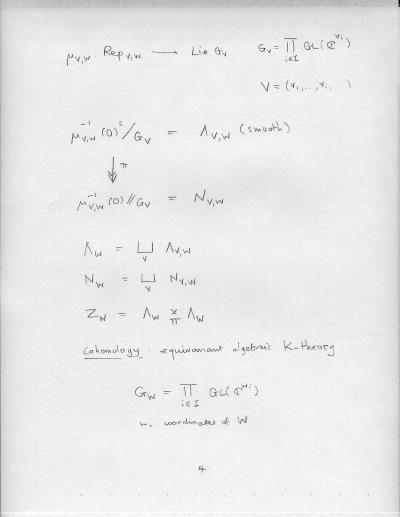 μ_{V,W} Rep_{V,W} ⟶ Lie G_V   G_V = ∏_{i∈I} GL(ℂ^{v_i})
V = (v_1, ..., v_i, ...)
μ_{V,W}^{-1}(0)^s / G_V = Λ_{V,W} (smooth)
↓ π
μ_{V,W}^{-1}(0) // G_V = N_{V,W}
Λ_W = ⊔_V Λ_{V,W}
N_W = ⊔_V N_{V,W}
Z_W = Λ_W ×_π Λ_W
Cohomology : equivariant algebraic K-theory
G_W = ∏_{i∈I} GL(ℂ^{w_i})
w_i coordinates of W
4